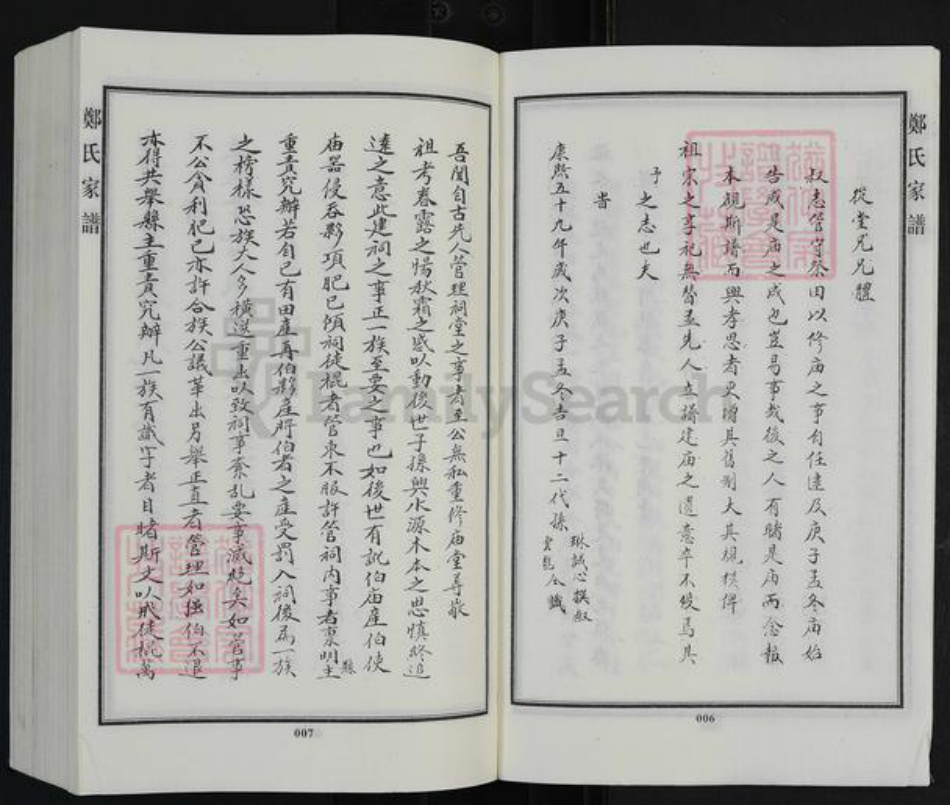 鄭氏家譜
從堂兄兄體
叔志管守祭田以修庙之事自任逮及庚子孟冬庙始
告成是庙之成也豈易事哉後之人有睹是庙而念報
本覩斯譜而興孝思者更增其舊制大其規模俾
祖宗之享祀無替孟先人立譜建庙之遺意卒不復焉其
予之志也夫
旹
康熙五十九年歲次庚子孟冬吉旦十二代孫
琳誠心譔叙
仝識
006
吾聞自古先人管理祠堂之事者至公無私重修庙堂尊敬
祖考春露之惕秋霜之感以動後世子孫興水源木本之思慎終追
遠之意此建祠之事正一族至要之事也如後世有訛伯庙産伯使
庙器侵吞夥項肥已傾祠徒棍者管束不服許管祠内事者禀明主
縣
重責究辦若自已有田産再伯夥産将伯者之産受罰入祠後為一族
之榜樣恐族大人多横逆重出以致祠事紊乱要事滅絶矣如管事
不公貪利肥已亦許合族公議革出另舉正直者管理如强伯不退
亦得共舉縣主重責究辦凡一族有識字者目睹斯文以戒徒棍萬
007
鄭氏家譜
FamilySearch